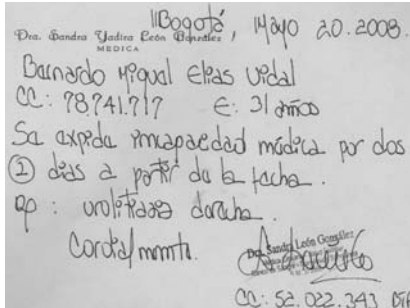 Bogotá, Mayo 20.2008.
Dra. Sandra Yadira León González
MEDICA
Bernardo Miguel Elias Vidal
CC: 78.741.717 E: 31 años
Se expide incapacidad médica por dos
② dias a partir de la fecha.
DP: urolitiasis derecha.
Cordialmente.
Dra. Sandra León González
CC: 52.022.343 BTA